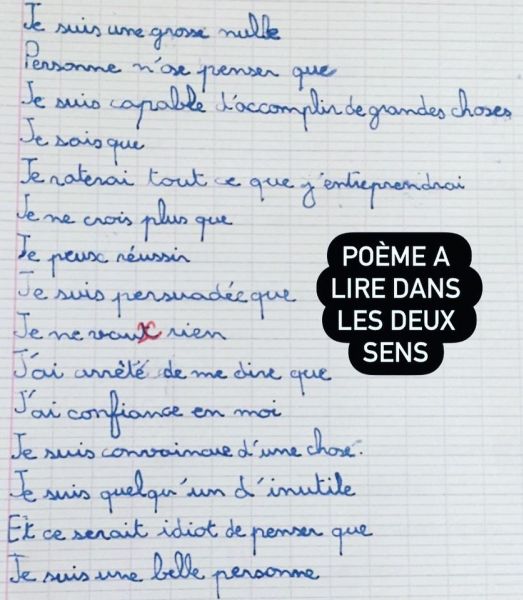 Je suis une grosse nulle
Personne n'ose penser que
Je suis capable d'accomplir de grandes choses
Je sais que
Je raterai tout ce que j'entreprendrai
Je ne crois plus que
Je peux réussir
Je suis persuadée que
Je ne vaux rien
J'ai arrêté de me dire que
J'ai confiance en moi
Je suis convaincue d'une chose.
Je suis quelqu'un d'inutile
Et ce serait idiot de penser que
Je suis une belle personne
POÈME A
LIRE DANS
LES DEUX
SENS